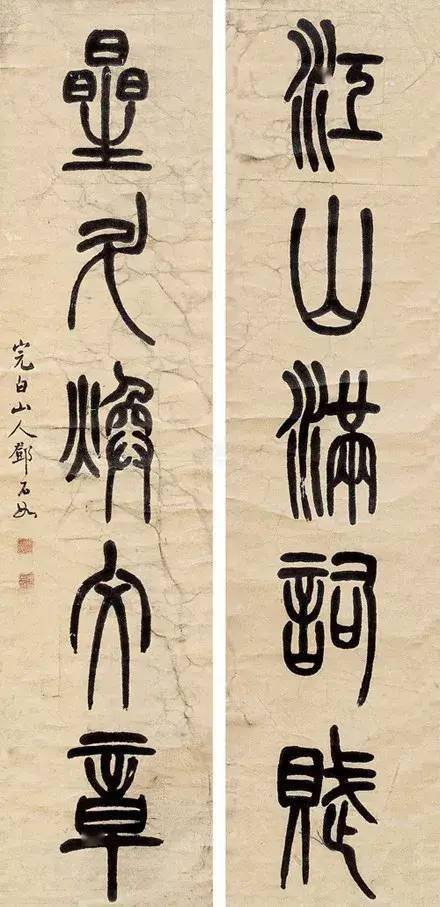 江山滿詞賦
曐斗煥文章
完白山人鄧石如